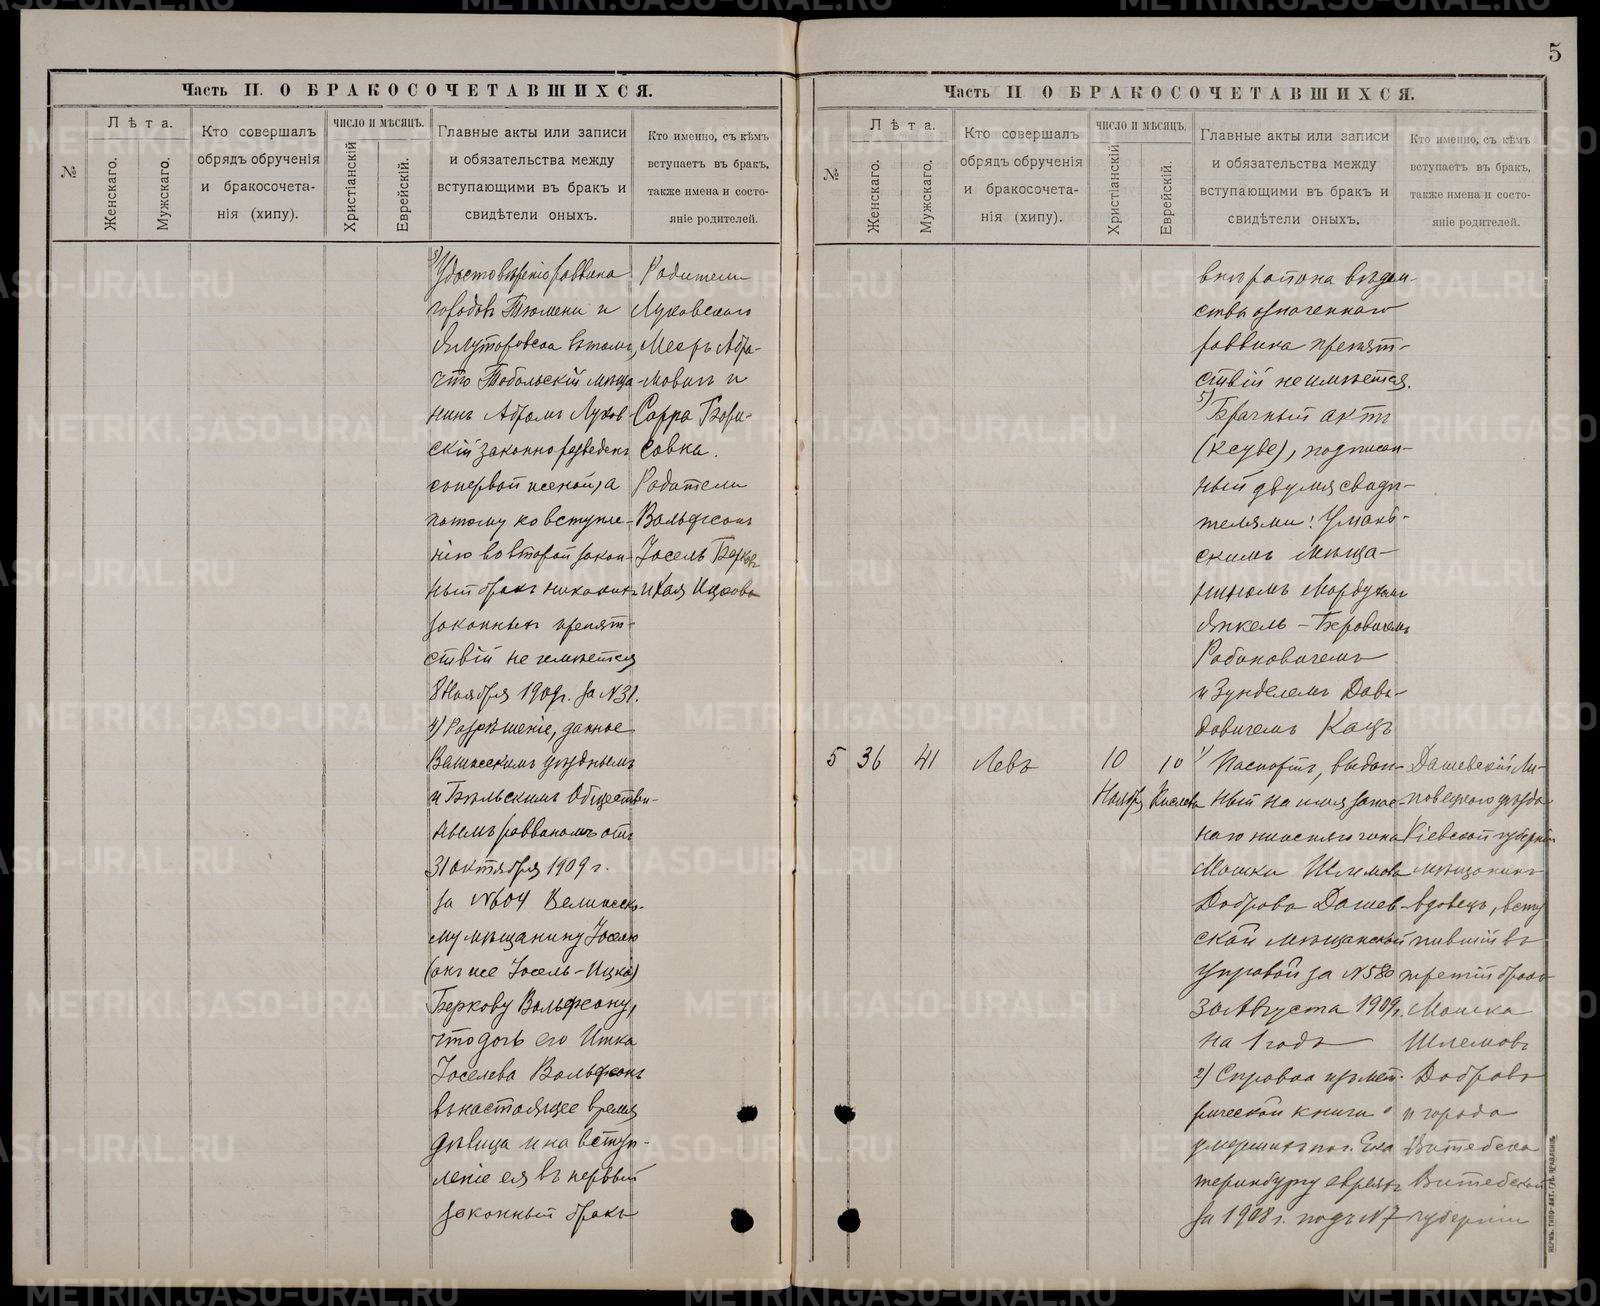 5
Часть II. О БРАКОСОЧЕТАВШИХСЯ.
№
Лѣта.
Женскаго.
Мужскаго.
Кто совершалъ
обрядъ обрученія
и бракосочета-
нія (хипу).
число и мѣсяцъ.
Христіанскій
Еврейскій.
Главные акты или записи
и обязательства между
вступающими въ бракъ и
свидѣтели оныхъ.
Кто именно, съ кѣмъ
вступаетъ въ бракъ,
также имена и состо-
яніе родителей.
3) Удостовѣреніе раввина
городовъ Тюмени и
Ялуторовска въ томъ,
что Тобольскій мѣща-
нинъ Абрамъ Лухов-
скій законно разведенъ
со первой женой, а
потому ко вступле-
нію во второй закон-
ный бракъ никакихъ
законныхъ препят-
ствій не имѣется
8 Ноября 1909 г. за № 31.
4) Разрѣшеніе, данное
Велижскимъ уѣзднымъ
и Бѣльскимъ Обществен-
нымъ раввиномъ отъ
31 октября 1909 г.
за № 604 Велижско-
му мѣщанину Іоселю
(онъ же Іосель-Ицка)
Беркову Вольфсону,
что дочь его Итка
Іоселева Вольфсонъ
въ настоящее время
дѣвица и на вступ-
леніе ея въ первый
законный бракъ
Родители
Луховскаго
Меер Абра-
мовичъ и
Сарра Бори-
совна.
Родители
Вольфсонъ
Іосель Берковъ
и Хая Ицкова
Часть II О БРАКОСОЧЕТАВШИХСЯ.
№
Лѣта.
Женскаго.
Мужскаго.
Кто совершалъ
обрядъ обрученія
и бракосочета-
нія (хипу).
число и мѣсяцъ.
Христіанскій
Еврейскій.
Главные акты или записи
и обязательства между
вступающими въ бракъ и
свидѣтели оныхъ.
Кто именно, съ кѣмъ
вступаетъ въ бракъ,
также имена и состо-
яніе родителей.
внѣ района вѣдом-
ства означеннаго
раввина препят-
ствій не имѣется.
5) Брачный актъ
(ксуве), подписан-
ный двумя свидѣ-
телями: Уманъ-
скимъ мѣща-
ниномъ Мордухомъ
Янкель-Беровичемъ
Рабиновичемъ
и Зунделемъ Давы-
довичемъ Кацъ
5 36 41 Левъ 10 Ноября 10 Кислева
1) Паспортъ, выдан-
ный на имя запас-
наго нижняго чина
Мошки Шлемова
Доброва Дашев-
ской мѣщанской
управой за № 580
30 Августа 1909 г.
на 1 годъ
2) Справка изъ мет-
рической книги о
умершихъ по г. Ека-
теринбургу евреяхъ
за 1908 г. подъ № 7
Дашевскій Ли-
повецкаго уѣзда
Кіевской губерніи
мѣщанинъ
вдовецъ, всту-
пившій въ
третій бракъ
Мошка
Шлемовъ
Добровъ
и города
Витебска
Витебской
губерніи
ПЕРМЬ. ТИПО-ЛИТ. ГУБ. ПРАВЛЕНІЯ.
METRIKI.GASO-URAL.RU